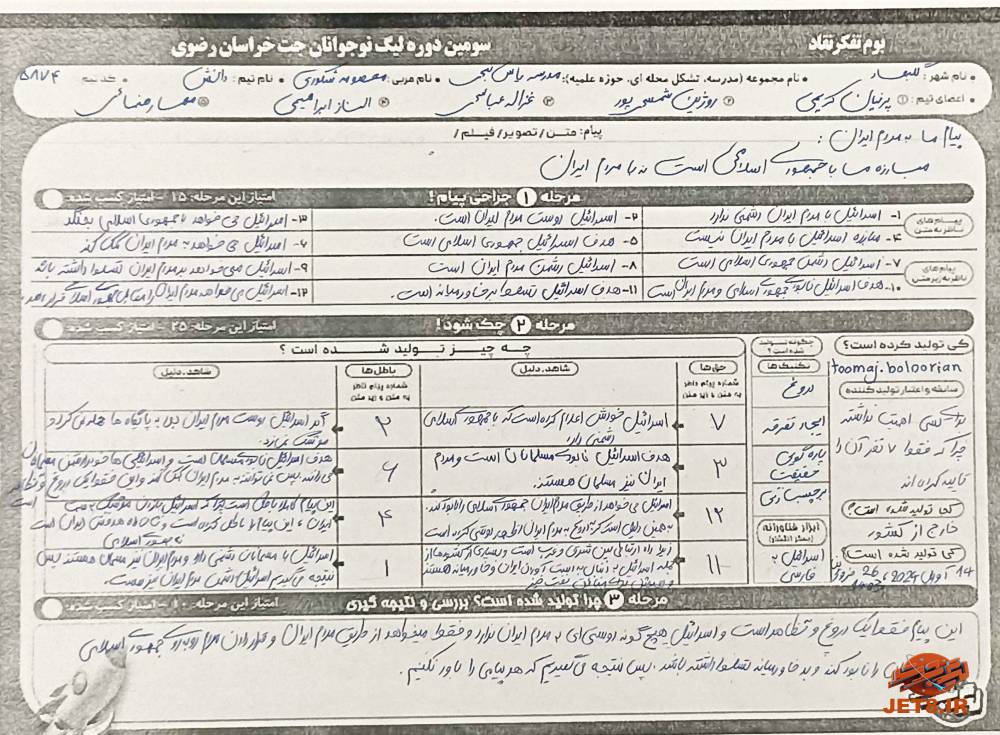 بوم تفکر نقاد
سومین دوره لیگ نوجوانان جت خراسان رضوی
• نام شهر: گلبهار • نام مجموعه (مدرسه، تشکل محله ای، حوزه علمیه): مدرسه یاس نبی • نام مربی: معصومه شکوری • نام تیم: دانش • کد تیم ۵۸۷۴
• اعضای تیم: ① پرنیان کریمی ② روژین شمسی پور ③ غزاله عباسی ④ الناز ابراهیمی ⑤ مهسا رضائی
پیام: متن / تصویر / فیلم /
پیام ما به مردم ایران:
مبارزه ما با جمهوری اسلامی است نه با مردم ایران
مرحله ۱ جراحی پیام!
امتیاز این مرحله: ۱۵ - امتیاز کسب شده:
پیام های ناظر به متن
۱- اسرائیل با مردم ایران دشمنی ندارد
۲- اسرائیل دوست مردم ایران است.
۳- اسرائیل می خواهد با جمهوری اسلامی بجنگد
۴- مبارزه اسرائیل با مردم ایران نیست
۵- هدف اسرائیل جمهوری اسلامی است
۶- اسرائیل می خواهد به مردم ایران کمک کند
پیام های ناظر به زیر متن
۷- اسرائیل دشمن جمهوری اسلامی است
۸- اسرائیل دشمن مردم ایران است
۹- اسرائیل می خواهد بر مردم ایران تسلط داشته باشد
۱۰- هدف اسرائیل نابودی جمهوری اسلامی و مردم ایران است
۱۱- هدف اسرائیل تسلط بر خاورمیانه است.
۱۲- اسرائیل می خواهد مردم ایران را مقابل جمهوری اسلامی قرار دهد
مرحله ۲ چک شود!
امتیاز این مرحله: ۲۵ - امتیاز کسب شده:
کی تولید کرده است؟
toomaj.boloorian
سابقه و اعتبار تولید کننده
چرا که فقط ۷ نفر آن را
تایید کرده اند
کجا تولید شده است؟
خارج از کشور
کی تولید شده است؟
14 آوریل 2024، 26 فروردین
1403
چگونه تولید شده است؟
تکنیک ها
دروغ
ایجاد تفرقه
پاره گویی حقیقت
برچسب زنی
ابزار فناورانه
اسرائیل به فارسی
چه چیز تولید شده است؟
حق ها
شماره پیام ناظر به متن و زیر متن
شاهد، دلیل
باطل ها
شماره پیام ناظر به متن و زیر متن
شاهد، دلیل
۷
اسرائیل خودش اعلام کرده است که با جمهوری اسلامی
دشمنی دارد
۲
اگر اسرائیل دوست مردم ایران بود به پایگاه ها حمله نمی کرد و
موشک نمی زد.
۳
هدف اسرائیل نابودی مسلمانان است و مردم
ایران نیز مسلمان هستند.
۶
هدف اسرائیل نابودی مسلمانان است و اسرائیلی ها خود برتر
۱۲
اسرائیل می خواهد از طریق مردم ایران جمهوری اسلامی را نابود کند.
به همین دلیل است که با دروغ به مردم ایران اظهار دوستی کرده است
۴
این پیام کاملا باطل است چرا که اسرائیل
ایران، این پیام را باطل کرده است و نشان داده هدفش ایران است
نه جمهوری اسلامی
۱۱
زیرا راه ارتباطی بین شرق و غرب است و بسیاری از کشورها از
جمله اسرائیل به دنبال به دست آوردن ایران و خاورمیانه هستند
۱
اسرائیل با مسلمانان دشمنی دارد و مردم ایران نیز مسلمان هستند پس
نتیجه می گیریم اسرائیل دشمن مردم ایران نیز هست.
مرحله ۳ چرا تولید شده است؟ بررسی و نتیجه گیری
امتیاز این مرحله: ۱۰ - امتیاز کسب شده:
این پیام فقط یک دروغ و تظاهر است و اسرائیل هیچ گونه دوستی ای به مردم ایران ندارد و فقط میخواهد از طریق مردم ایران و قرار دادن مردم رو به روی جمهوری اسلامی
را نابود کند و بر خاورمیانه تسلط داشته باشد. پس نتیجه می گیریم که هر پیامی را باور نکنیم.
JET8.IR